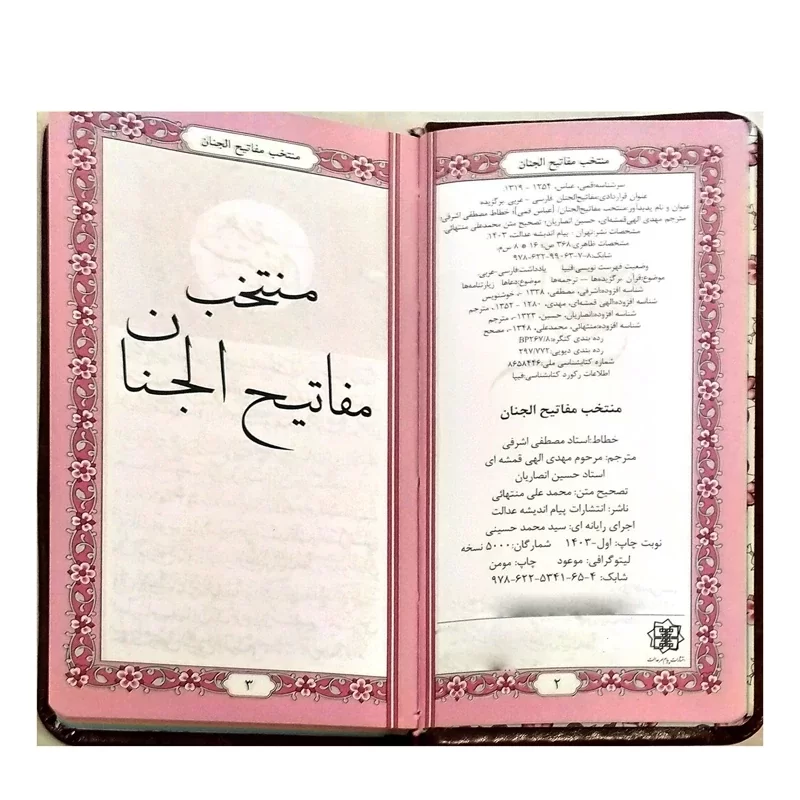 منتخب مفاتیح الجنان
سرشناسه:قمی، عباس، ۱۲۵۴ - ۱۳۱۹
عنوان قراردادی:مفاتیح‌الجنان فارسی - عربی برگزیده
عنوان و نام پدیدآور:منتخب مفاتیح‌الجنان/ (عباس قمی)؛ خطاط مصطفی اشرفی؛
مترجم مهدی الهی‌قمشه‌ای، حسین انصاریان؛ تصحیح متن محمدعلی منتهائی.
مشخصات نشر:تهران - پیام اندیشه عدالت، ۱۴۰۳.
مشخصات ظاهری:۳۶۸ ص؛ ۱۶ * ۸ س‌م.
شابک:۸-۷-۹۹۰۶۳-۶۲۲-۹۷۸
وضعیت فهرست نویسی:فیپا یادداشت:فارسی-عربی.
موضوع:قرآن برگزیده‌ها -- ترجمه‌ها موضوع:دعاها زیارتنامه‌ها
شناسه افزوده:اشرفی، مصطفی، ۱۳۳۸ -، خوشنویس
شناسه افزوده:الهی قمشه‌ای، مهدی، ۱۲۸۰ - ۱۳۵۲، مترجم
شناسه افزوده:انصاریان، حسین، ۱۳۲۳-، مترجم
شناسه افزوده:منتهائی، محمدعلی، ۱۳۴۸-، مصحح
رده بندی کنگره:BP۲۶۷/۸
رده بندی دیویی:۲۹۷/۷۷۲
شماره کتابشناسی ملی:۸۶۵۸۴۴۶
اطلاعات رکورد کتابشناسی:فیپا
منتخب مفاتیح الجنان
خطاط:استاد مصطفی اشرفی
مترجم: مرحوم مهدی الهی قمشه ای
استاد حسین انصاریان
تصحیح متن: محمد علی منتهائی
ناشر: انتشارات پیام اندیشه عدالت
اجرای رایانه ای: سید محمد حسینی
نوبت چاپ: اول-۱۴۰۳ شمارگان:۵۰۰۰ نسخه
لیتوگرافی: موعود چاپ: مومن
شابک: ۴-۶۵-۵۳۴۱-۶۲۲-۹۷۸
۲
منتخب مفاتیح الجنان
منتخب
مفاتیح الجنان
۳